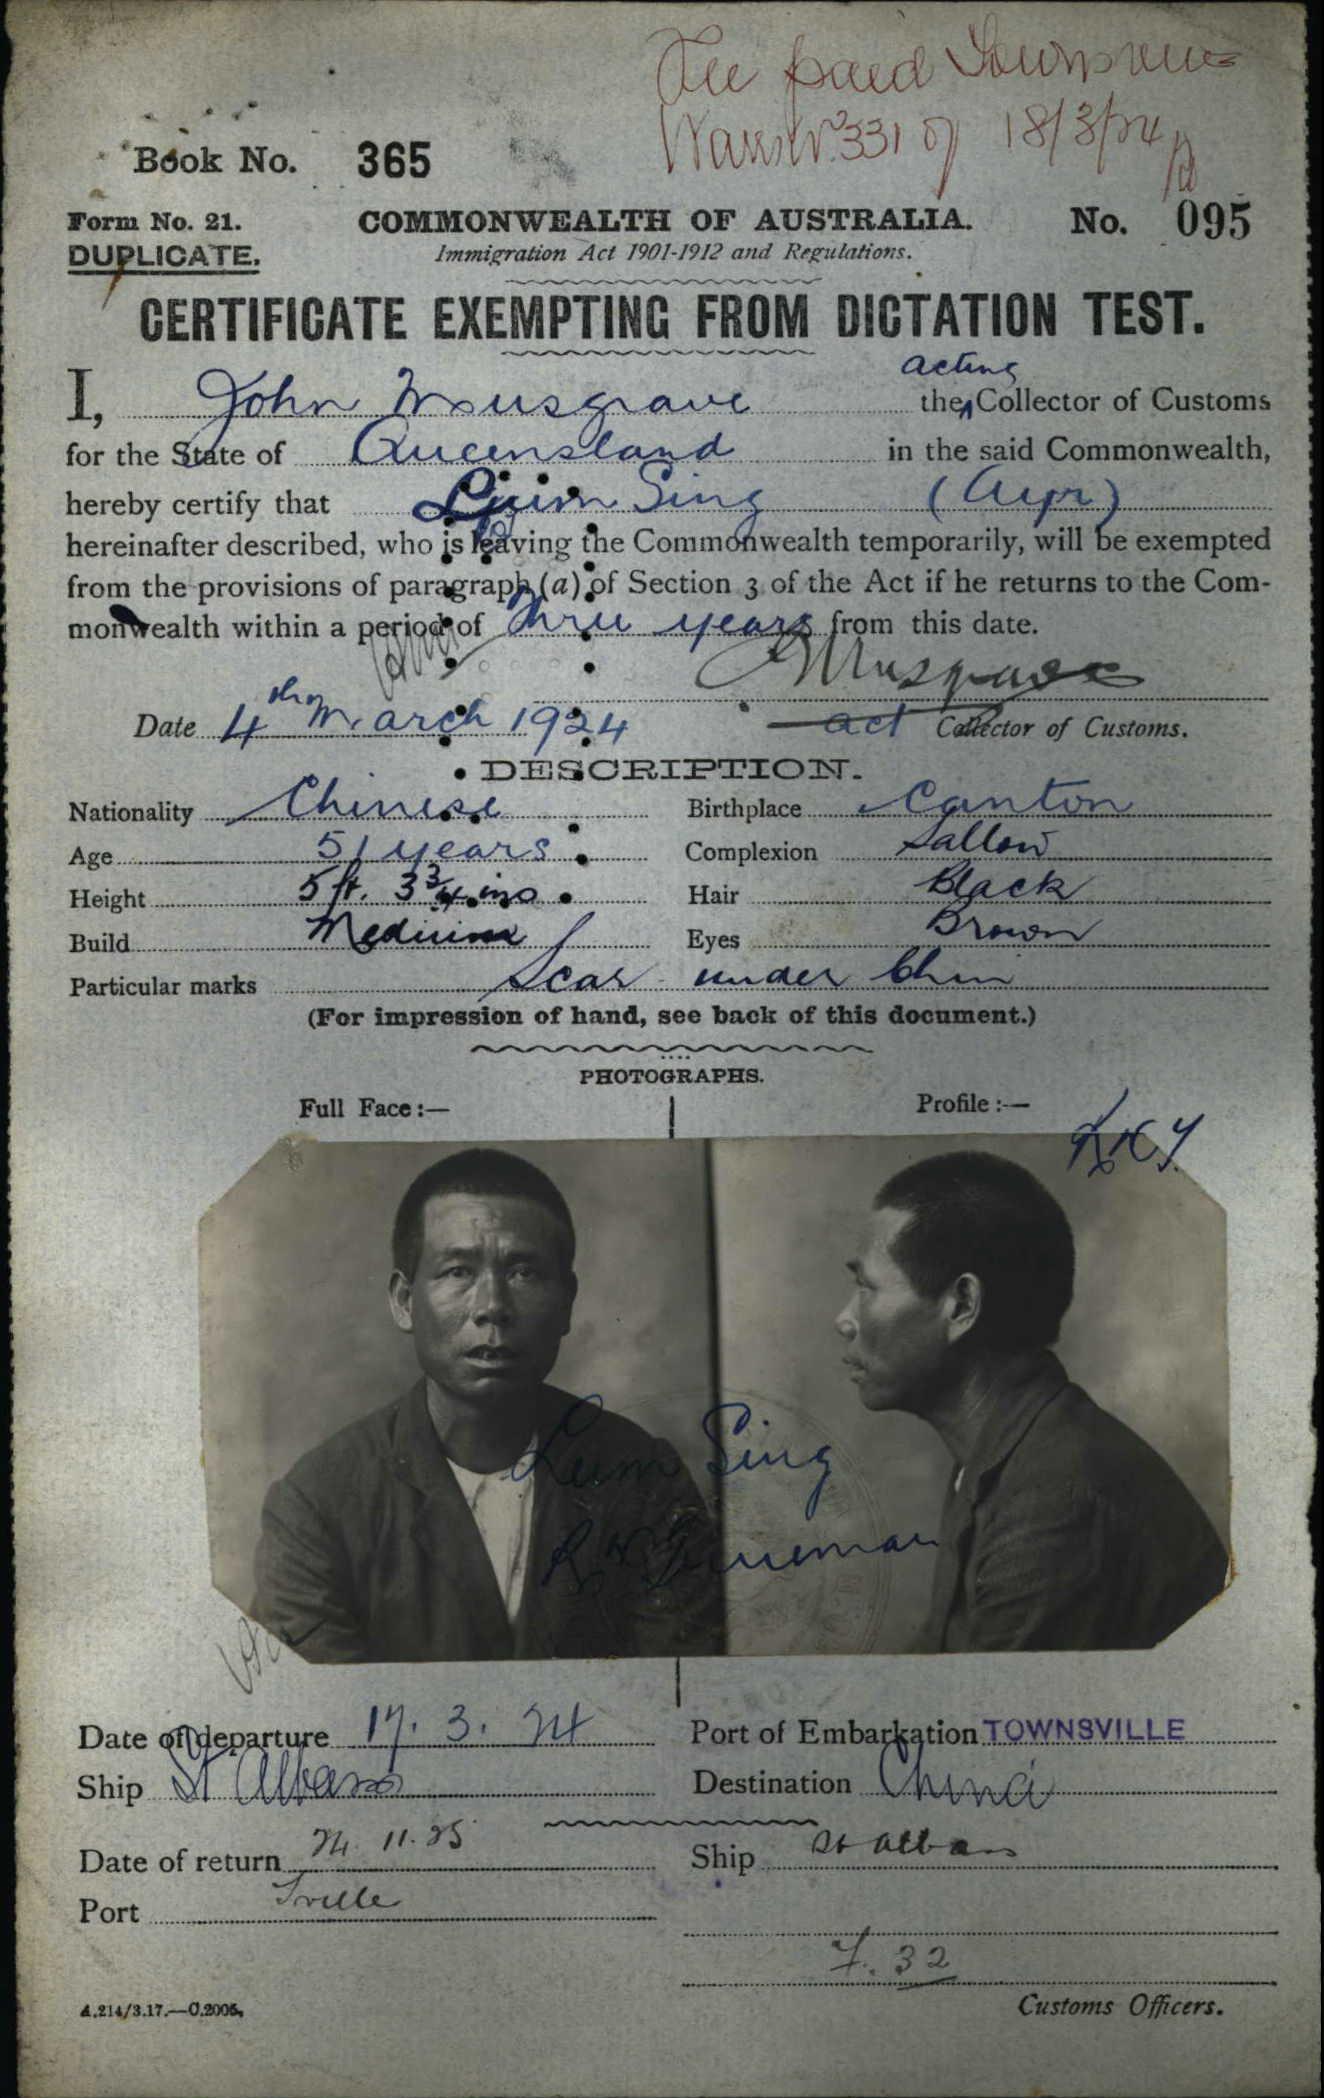 Fee paid Townsville
331 of 18/3/24
Book No. 365
Form No. 21. COMMONWEALTH OF AUSTRALIA. No. 095
DUPLICATE. Immigration Act 1901-1912 and Regulations.
CERTIFICATE EXEMPTING FROM DICTATION TEST.
acting
I, John Musgrave the Collector of Customs
for the State of Queensland in the said Commonwealth,
hereby certify that Lum Sing (Ayr)
hereinafter described, who is leaving the Commonwealth temporarily, will be exempted
from the provisions of paragraph (a) of Section 3 of the Act if he returns to the Com-
monwealth within a period of Three years from this date.
Musgrave
Date 4th March 1924 act Collector of Customs.
DESCRIPTION.
Nationality Chinese Birthplace Canton
Age 51 years Complexion Sallow
Height 5 ft. 3 3/4 ins Hair Black
Build Medium Eyes Brown
Particular marks Scar under Chin
(For impression of hand, see back of this document.)
PHOTOGRAPHS.
Full Face:— Profile:—
Lum Sing
Date of departure 17. 3. 24 Port of Embarkation TOWNSVILLE
Ship St Albans Destination China
Date of return 24. 11. 25 Ship St Albans
Port Tville
7. 32
A.214/3.17.—C.2005. Customs Officers.